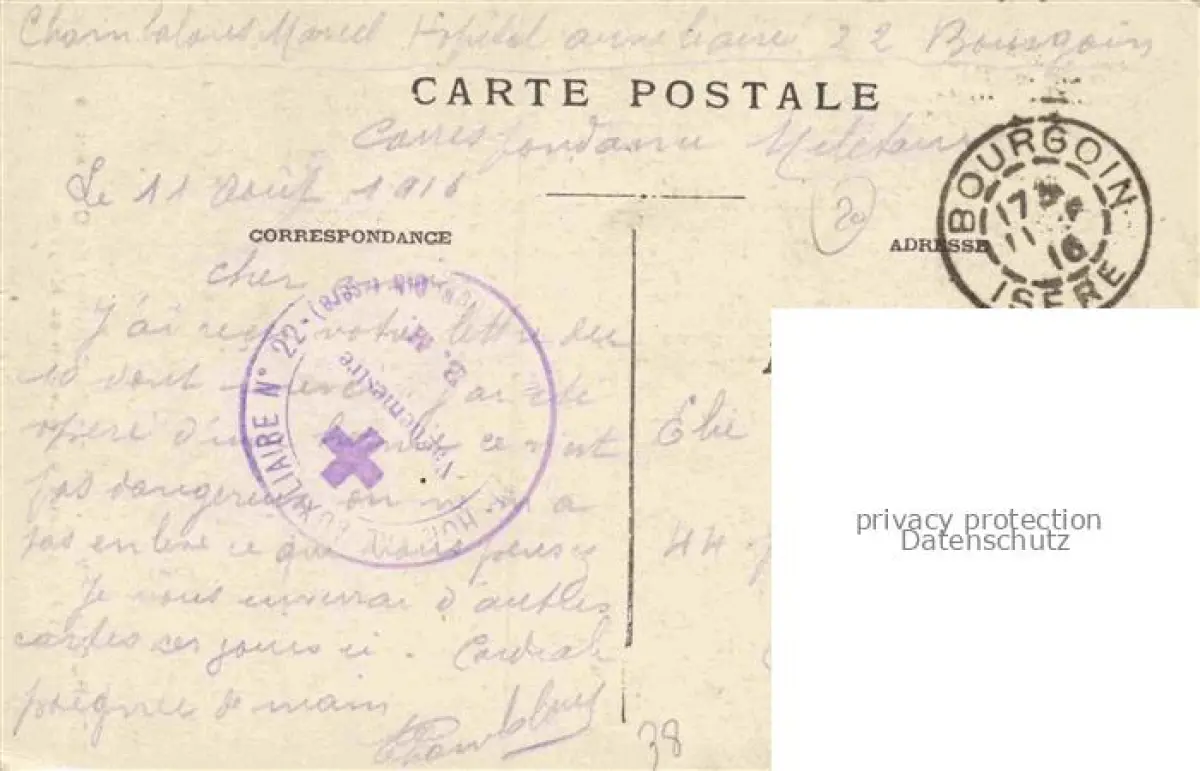 Marcel Hopital auxiliaire 22 Bourgoin
CARTE POSTALE
Correspondance Militaire
Le 11 Août 1916
20
CORRESPONDANCE
ADRESSE
BOURGOIN
17
11 16
ISERE
cher
J'ai reçu votre lettre du
10 dont merci J'ai été
opéré d'une ce n'est
pas dangereux on m'a
pas enlevé ce que vous pensez
Je vous enverrai d'autres
cartes ces jours ci. Cordiale
poignée de main
AUXILIAIRE N° 22
Vaguemestre
Elie
44
38
privacy protection
Datenschutz